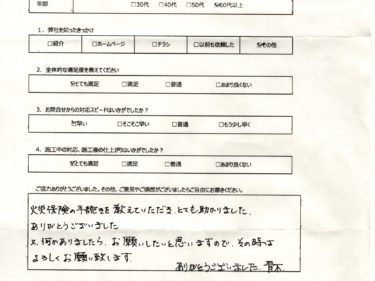 年齢 □30代 □40代 □50代 ☑60代以上
1．弊社を知ったきっかけ
□紹介 □ホームページ □チラシ □以前も依頼した ☑その他
2．全体的な満足度を教えてください
☑とても満足 □満足 □普通 □あまり良くない
3．お問合せからの対応スピードはいかがでしたか？
☑早い □そこそこ早い □普通 □もう少し早く
4．施工中の対応、施工後の仕上がりはいかがでしたか？
☑とても満足 □満足 □普通 □あまり良くない
ご協力ありがとうございました。その他、ご意見やご感想がございましたらご自由にお書きください。
火災保険の手続きを教えていただき、とても助かりました。
ありがとうございました
又、何かありましたら、お願いしたいと思いますので、その時は
よろしくお願い致します
ありがとうございました 青木